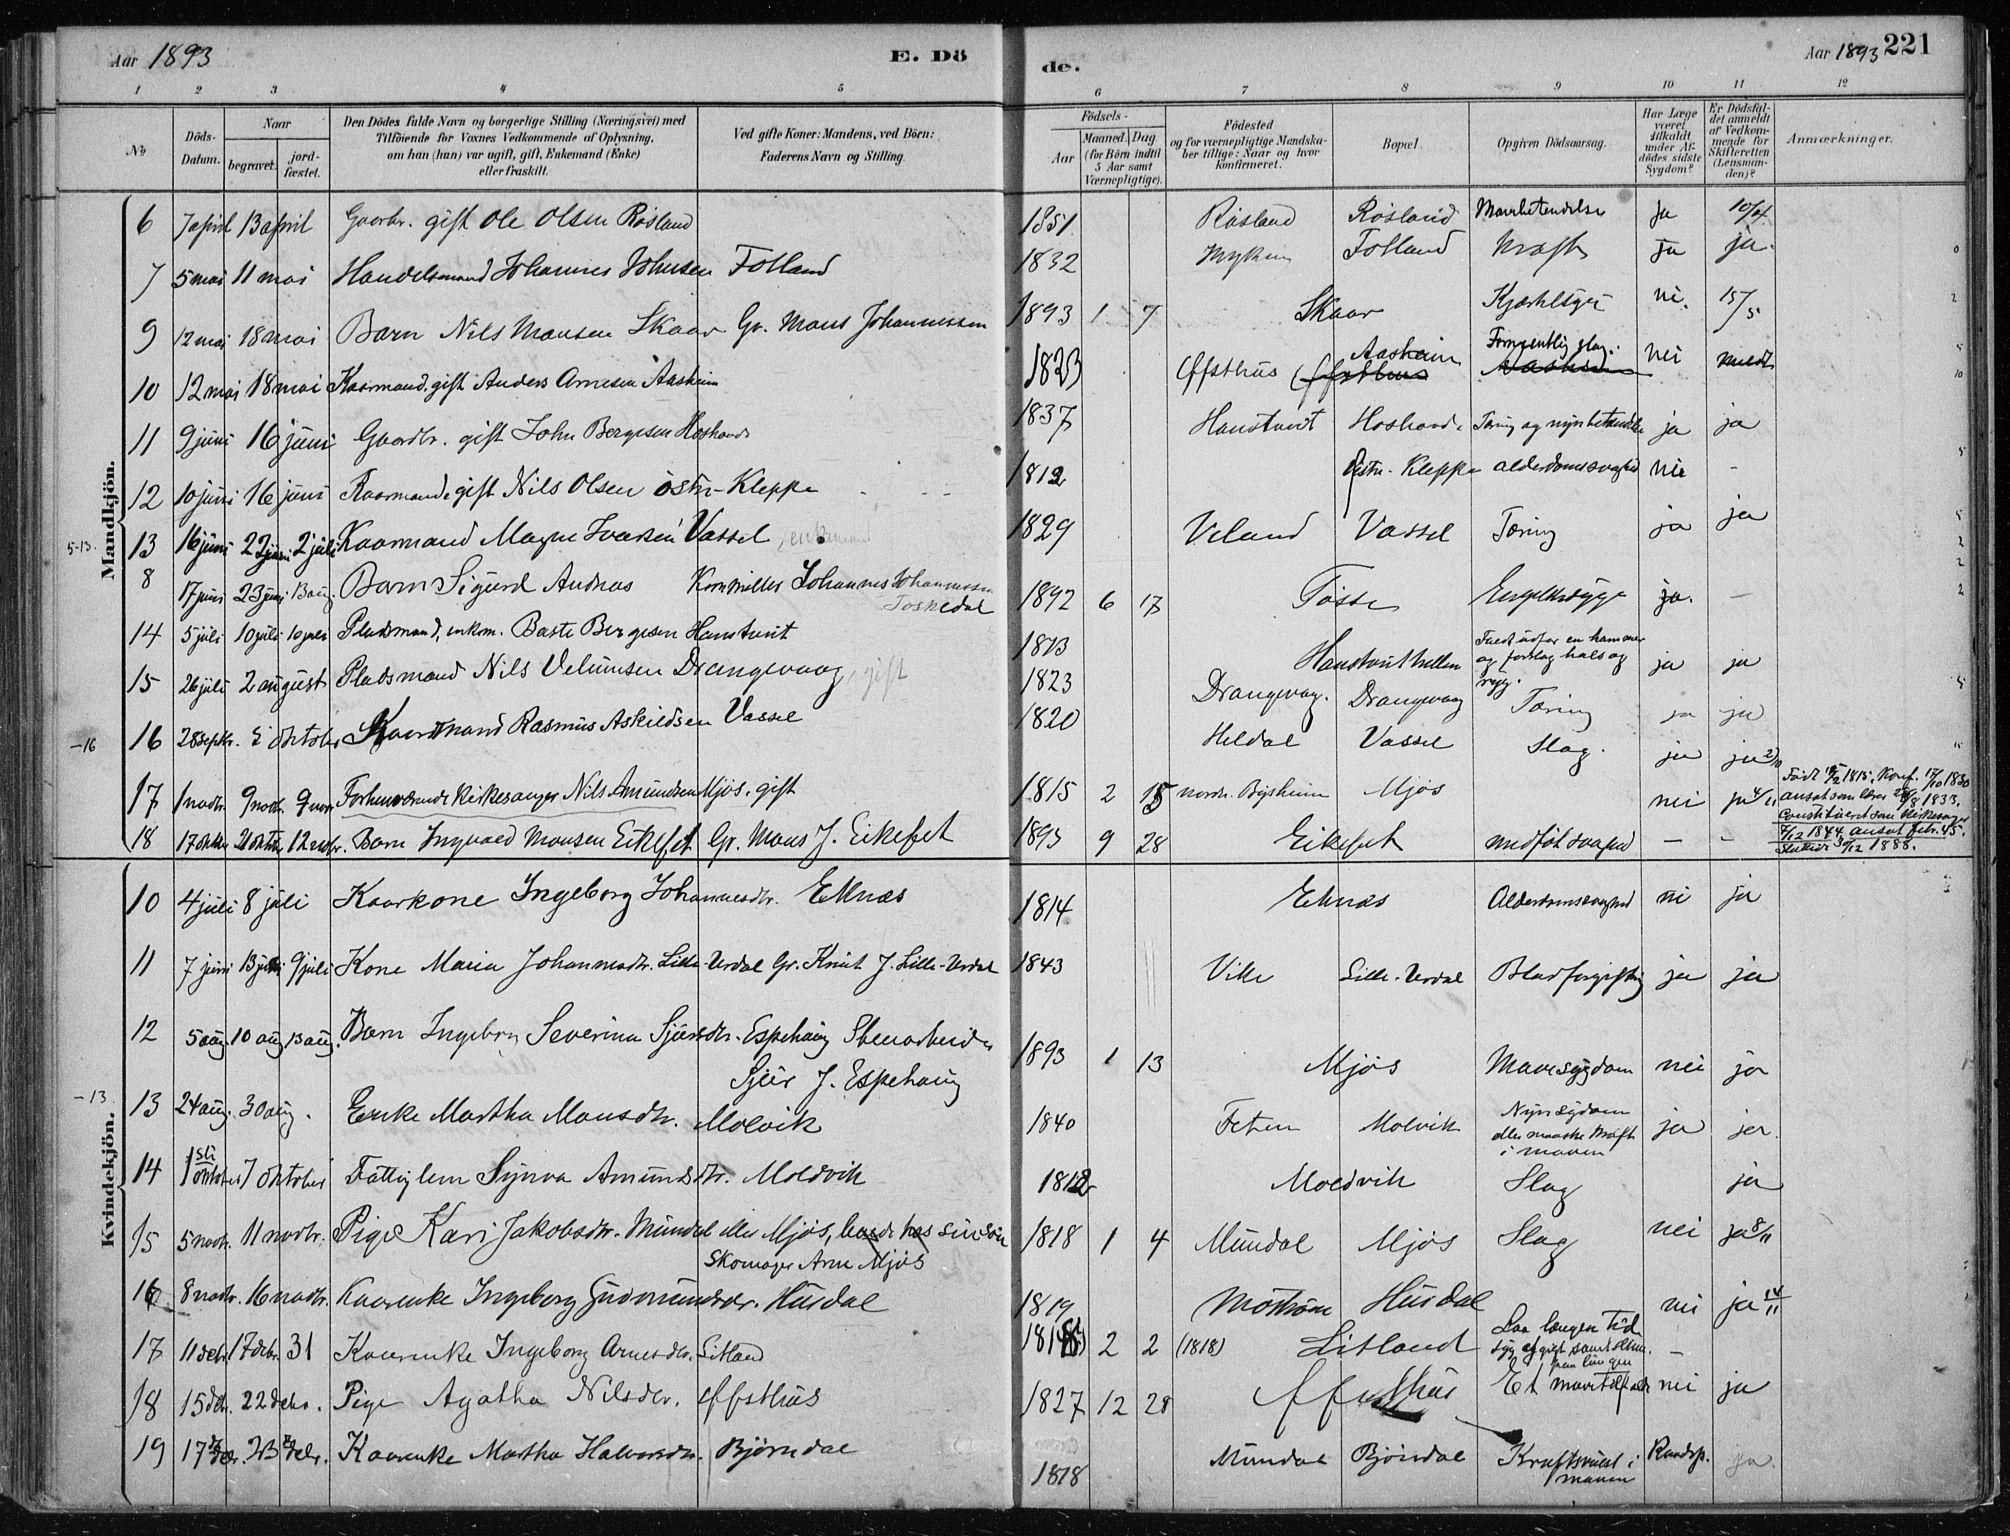 Aar 1893 E. Dö
de. Aar 1893 221
1 2 3 4 5 6 7 8 9 10 11 12
No
Döds-Datum.
Naar
begravet.
jordfæstet.
Den Dödes fulde Navn og borgerlige Stilling (Næringsvei) med
Tilföiende for Voxnes Vedkommende af Oplysning,
om han (hun) var ugift, gift, Enkemand (Enke)
eller fraskilt.
Ved gifte Koner: Mandens, ved Börn:
Faderens Navn og Stilling.
Födsels-
Aar
Maaned. Dag.
(for Börn indtil
5 Aar samt
Værnepligtige).
Födested
og for værnepligtige Mandskaber tillige: Naar og hvor
konfirmeret.
Bopæl.
Opgiven Dödsaarsag.
Har Læge
været
tilkaldt
under Afdödes sidste
Sygdom?
Er Dödsfaldet anmeldt
af Vedkommende for
Skifteretten
(Lensmanden)?
Anmærkninger.
Mandkjön.
6 7 april 13 april Gaardbr. gift Ole Olsen Røsland 1851 Røsland Røsland Mavebetendelse ja 10/4
7 5 mai 11 mai Handelsmand Johannes Johnsen Folland 1832 Myking Folland Kræft ja ja
9 12 mai 18 mai Barn Nils Monsen Skaar Gr. Mons Johannessen 1893 1 7 Skaar nei 15/5
10 12 mai 18 mai Kaarmand. gift Anders Arnesen Aasheim 1823 Effsthus Aasheim Formentlig slag. nei meldt
11 9 juni 16 juni Gaardbr. gift John Bergesen Hoshovde 1837 Hanstveit Hoshovde Tæring og nyrebetændelse ja ja
12 10 juni 16 juni Kaarmand gift Nils Olsen östre-Kleppe 1812 östre-Kleppe alderdomssvaghed nei -
13 16 juni 22 juni 2 juli Kaarmand Magne Ivarsen Vassel enkemand 1829 Veland Vassel Tæring ja ja
8 17 juni 23 juni 13 aug. Barn Sigurd Andreas Kornmöller Johannes Johannessen
Toskedal 1892 6 17 Tosse Engelsksyge ja. -
14 5 juli 10 juli 10 juli Pladsmand, enkem. Baste Bergesen Hanstveit 1813 Hanstveithellen Faldt udfor en hammer
og forslog hals og
rygg. ja ja
15 26 juli 2 august Pladsmand Nils Velumsen Drangevaag, gift 1823 Drangevaag. Drangevaag Tæring ja ja
16 28 septbr. 5 oktober Kaarmand Rasmus Askildsen Vassel 1820 Heldal Vassel Slag. ja ja
17 1 novbr. 9 novbr. 9 novbr. Forhenværende kirkesanger Nils Amundsen Mjøs. gift 1815 2 15 nordre Bysheim Mjøs nei ja 4/11 Født 15/2 1815. Konf. 17/10 1830
ansat som lærer 1833.
Constitueret som Kirkesanger
1844 ansat febr. 45.
1888.
18 17 oktbr 21 oktbr 12 novbr. Barn Ingvald Monsen Eikefet Gr. Mons J. Eikefet 1893 9 28 Eikefet medfødt svaghed - -
Kvindekjön.
10 4 juli 8 juli Kaarkone Ingeborg Johannesdtr. Eknæs 1814 Eknæs Alderdomssvaghed nei ja
11 7 juni 13 juni 9 juli Kone Maria Johannesdtr. Lille-Urdal Gr. Knut J. Lille-Urdal 1843 Ville Lille-Urdal Blodforgiftnig ja ja
12 5 aug. 10 aug 13 aug. Barn Ingeborg Severina Sjursdtr. Espehaug Stenarbeider
Sjur J. Espehaug 1893 1 13 Mjøs Mavesygdom nei ja
13 24 aug. 30 aug. Enke Martha Monsdtr. Molvik 1840 Fetem Molvik Nyresygdom
eller maaske Kræft
i maven ja ja.
14 1ste oktober 7 oktober Fattiglem Synva Amundsdtr. Moldvik 1812 Moldvik Slag ja
15 5 novbr. 11 novbr. Pige Kari Jakobsdtr. Mundal eller Mjøs, hos sin søn
Skomager Arne Mjøs 1818 1 4 Mundal Mjøs Slag nei ja 8/11
16 8 novbr. 16 novbr. Kaarenke Ingeborg Gudmundsdtr. Husdal 1819 Møstrøm Husdal nei ja 14/11
17 11 decbr. 17 decbr. 31 Kaarenke Ingeborg Arnesdtr. Litland 1818 2 2 (1818) Litland Laa længere tid
syg af gigt samt slim
paa lungen -
18 15 decbr. 22 decbr. Pige Agatha Nilsdtr. Effsthus 1827 12 28 Effesthus Et mavetilfælde nei ja
19 17 decbr. 23 decbr. Kaarenke Martha Halvorsdtr. Björndal 1818 Mundal Björndal Kræftsvulst i
maven Raadsp. ja.